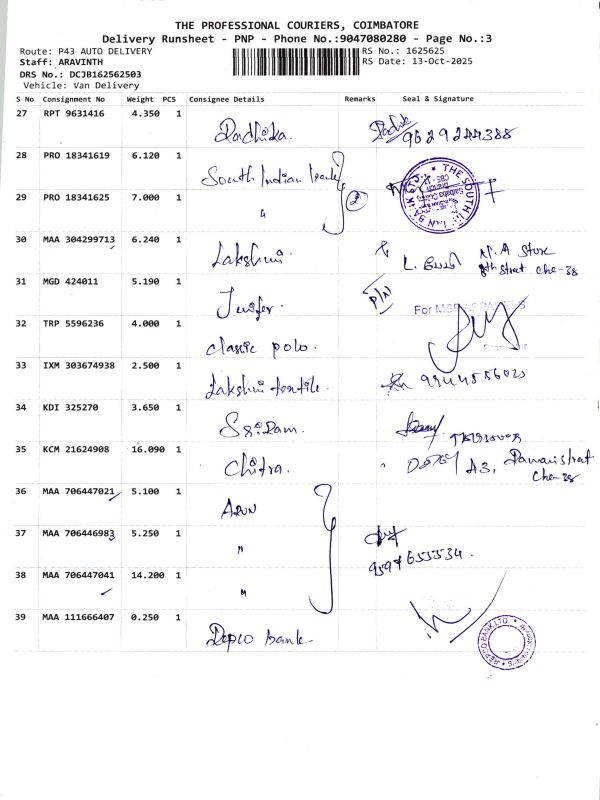 THE PROFESSIONAL COURIERS, COIMBATORE
Delivery Runsheet - PNP - Phone No.:9047080280 - Page No.:3
Route: P43 AUTO DELIVERY RS No.: 1625625
Staff: ARAVINTH RS Date: 13-Oct-2025
DRS No.: DCJB162562503
Vehicle: Van Delivery
S No Consignment No Weight PCS Consignee Details Remarks Seal & Signature
27 RPT 9631416 4.350 1 Radhika. 9629244388
28 PRO 18341619 6.120 1 South Indian bank
29 PRO 18341625 7.000 1 " 2
30 MAA 304299713 6.240 1 Lakshmi. L. N.A Store
8th strat Che-38
31 MGD 424011 5.190 1 Jenifer. P/N
For
32 TRP 5596236 4.000 1 classic polo.
33 IXM 303674938 2.500 1 Lakshmi textile.
34 KDI 325270 3.650 1 Sri Ram.
35 KCM 21624908 16.090 1 Chitra. A3,
Che-38
36 MAA 706447021 5.100 1 Arun
37 MAA 706446983 5.250 1 "
9597655534.
38 MAA 706447041 14.200 1 "
39 MAA 111666407 0.250 1 Repco bank
REPCO BANK LTD.